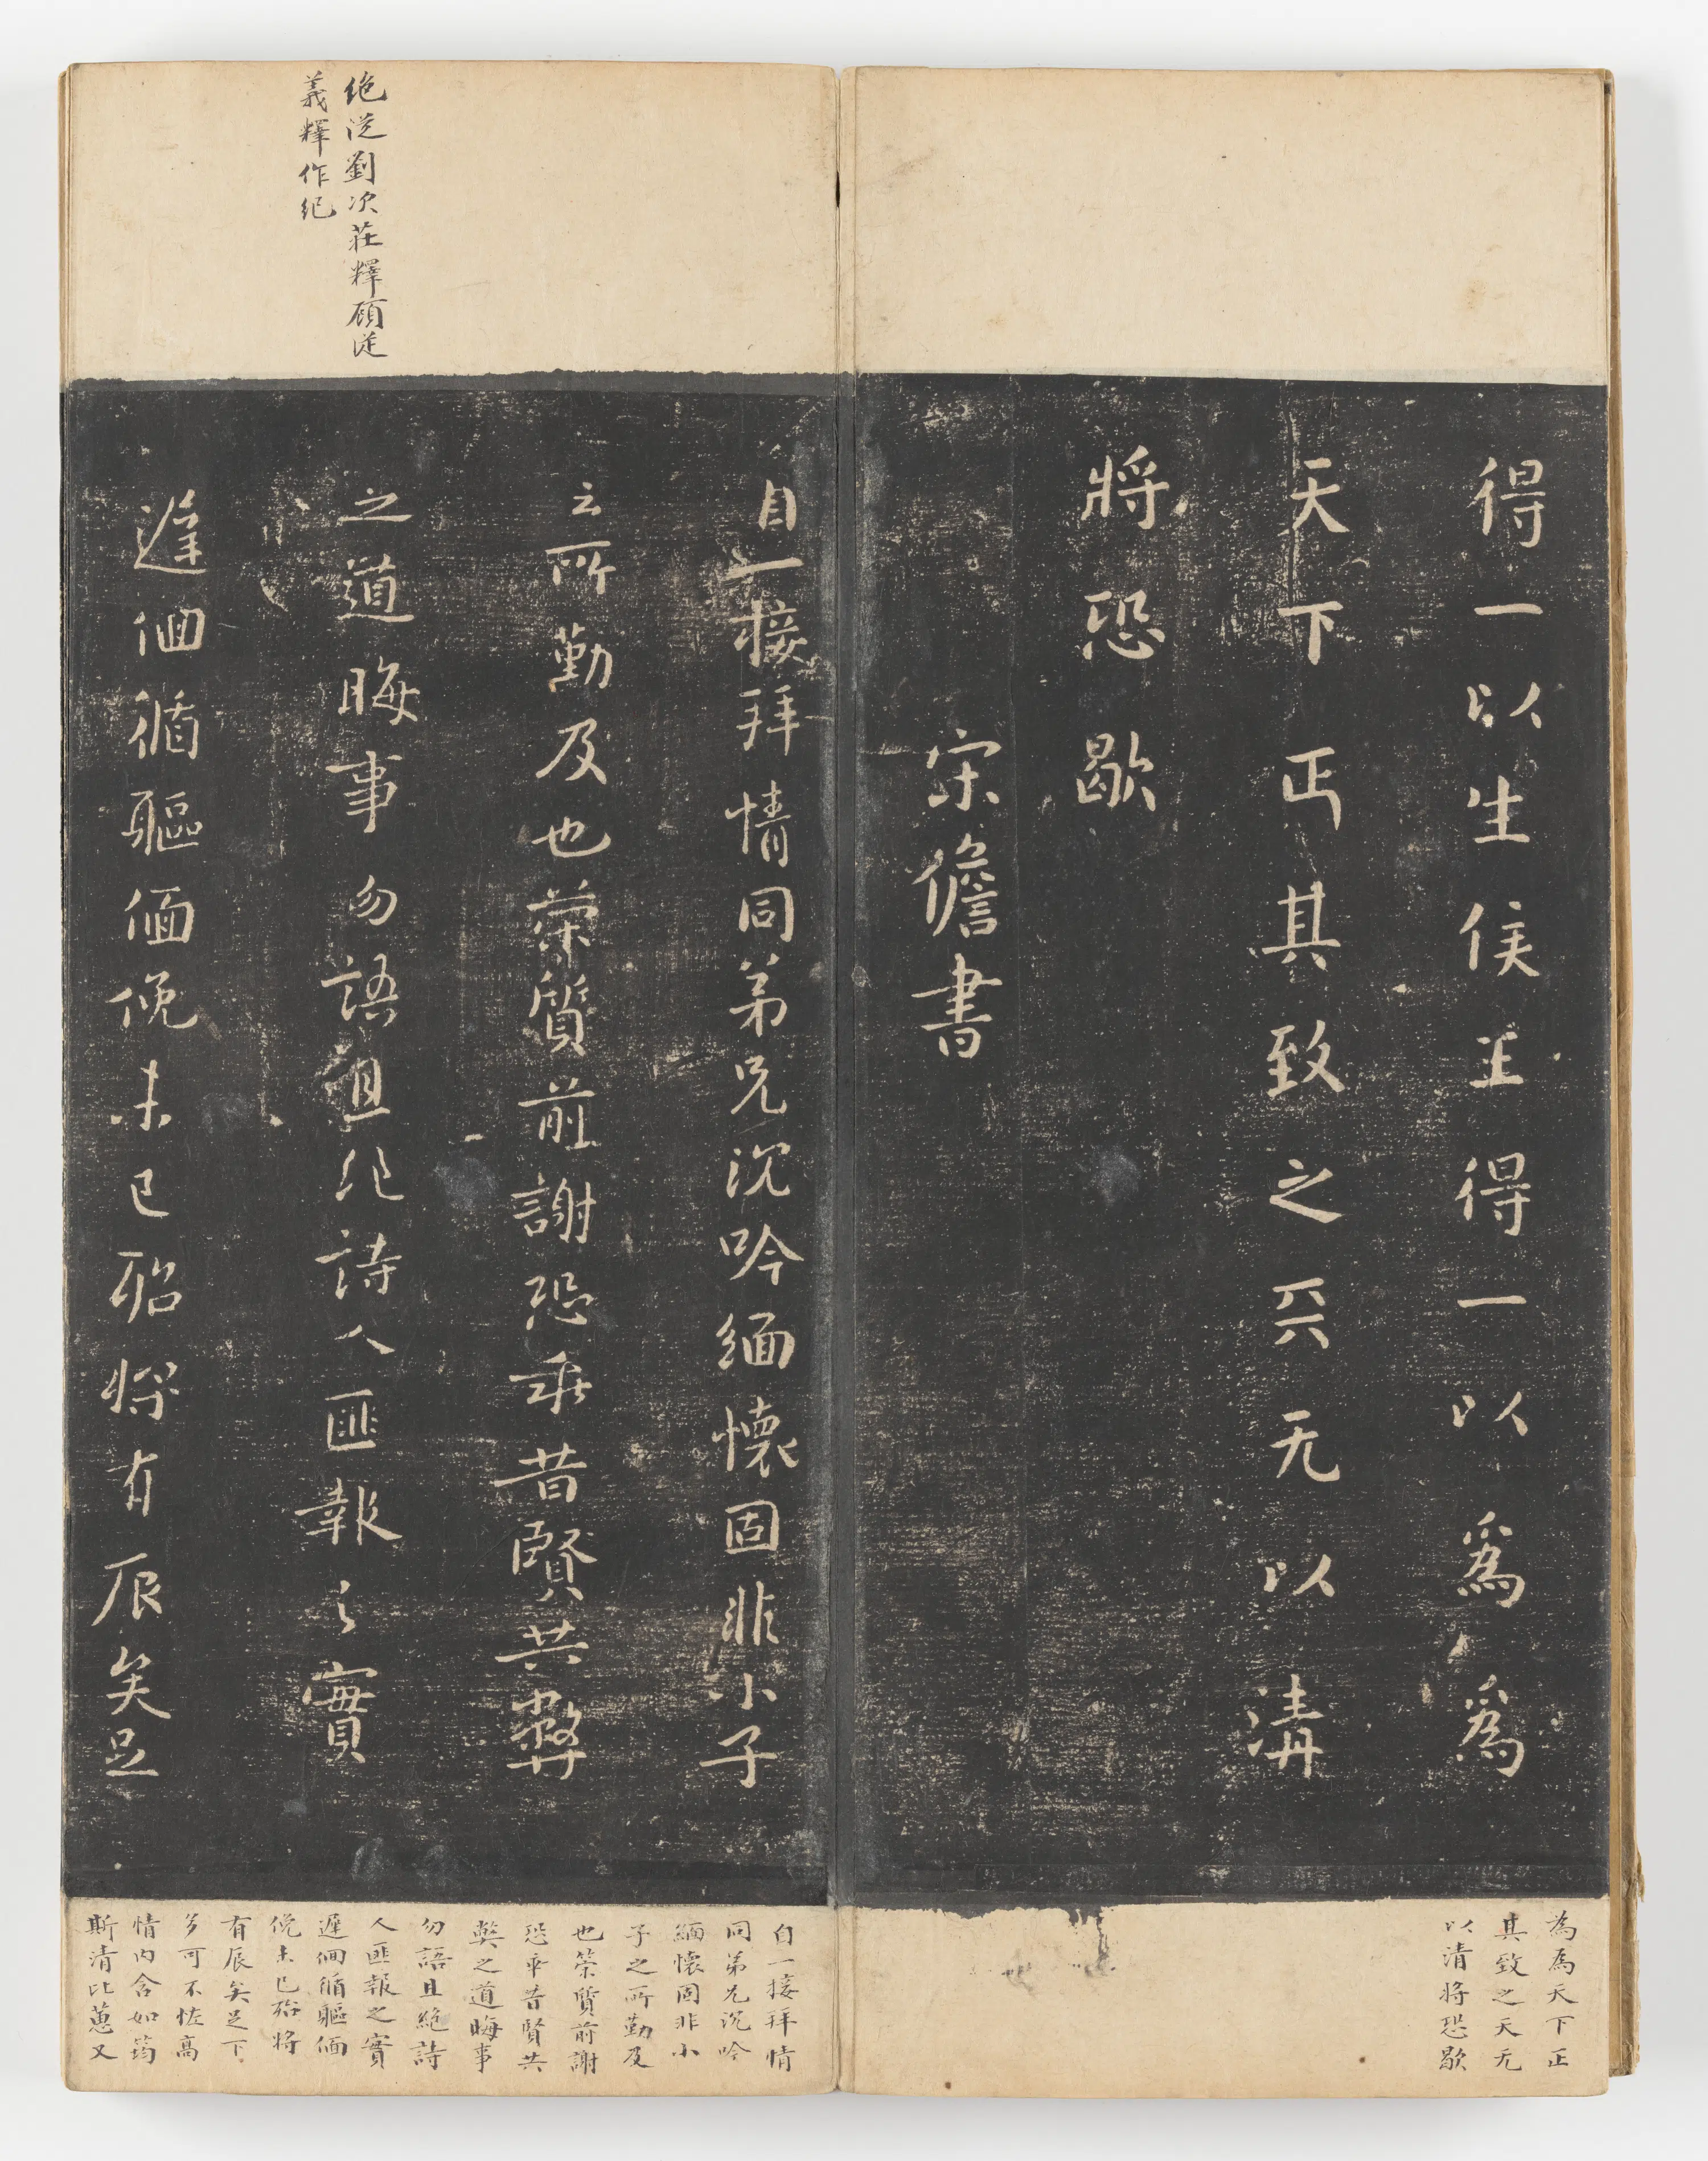 得一以生侯王得一以為為
天下正其致之天无以清
將恐歇
宋儋書
為為天下正
其致之天无
以清將恐歇
絶從劉次莊釋顧從
義釋作紀
自一接拜情同弟兄沉吟緬懷固非小子
之所勤及也榮質前謝恐乖昔賢共弊
之道晦事勿語且絶詩人匪報之實
遲佪循軀偭俛未已殆將有辰矣足
自一接拜情
同弟兄沉吟
緬懷固非小
子之所勤及
也榮質前謝
恐乖昔賢共
弊之道晦事
勿語且絶詩
人匪報之實
遲佪循軀偭
俛未已殆將
有辰矣足下
多可不恠高
情內含如筠
斯清比蕙又